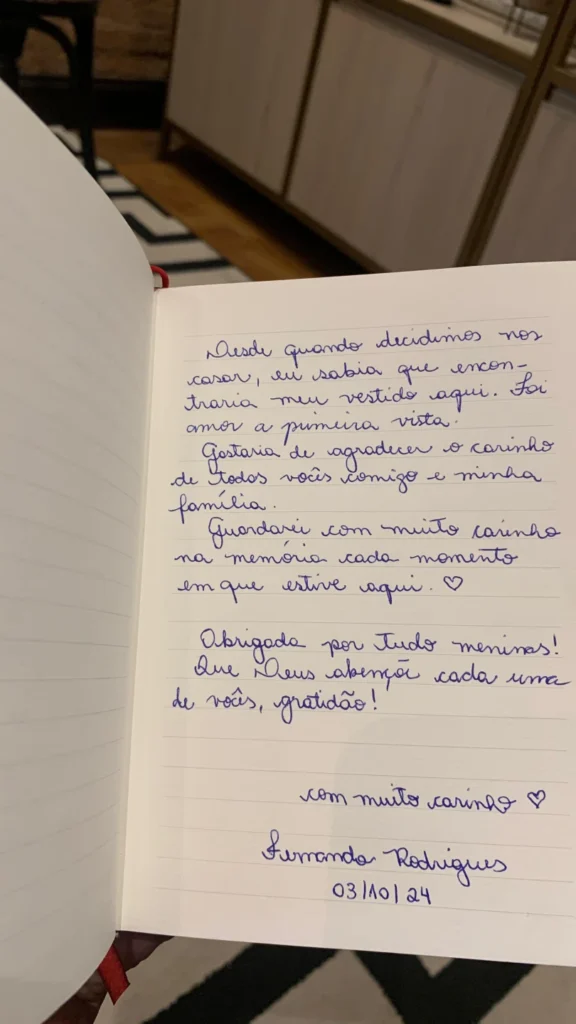 Desde quando decidimos nos
casar, eu sabia que encon-
traria meu vestido aqui. Foi
amor a primeira vista.
Gostaria de agradecer o carinho
de todos vocês comigo e minha
família.
Guardarei com muito carinho
na memória cada momento
em que estive aqui. ♡
Obrigada por tudo meninas!
Que Deus abençõi cada uma
de vocês, gratidão!
com muito carinho ♡
Fernanda Rodrigues
03/10/24